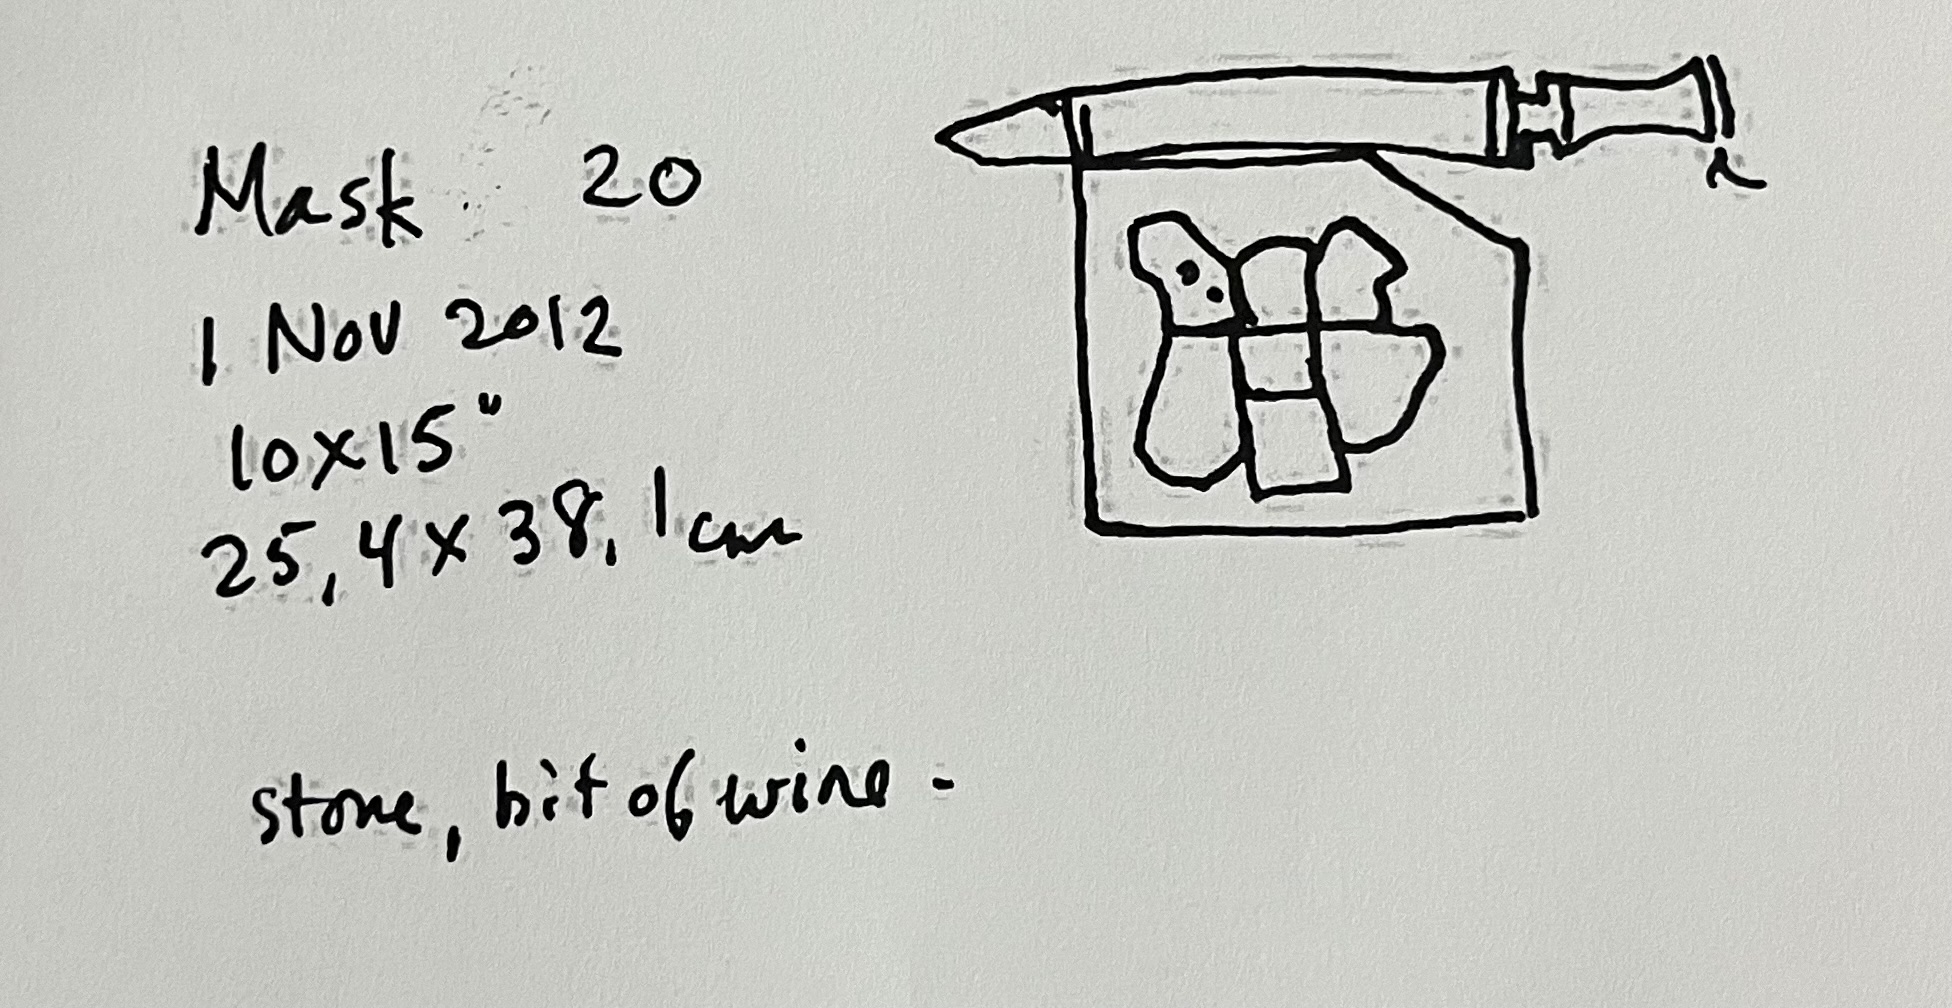 Mask 20
1 Nov 2012
10x15"
25,4 x 38,1cm
stone, bit of wire -